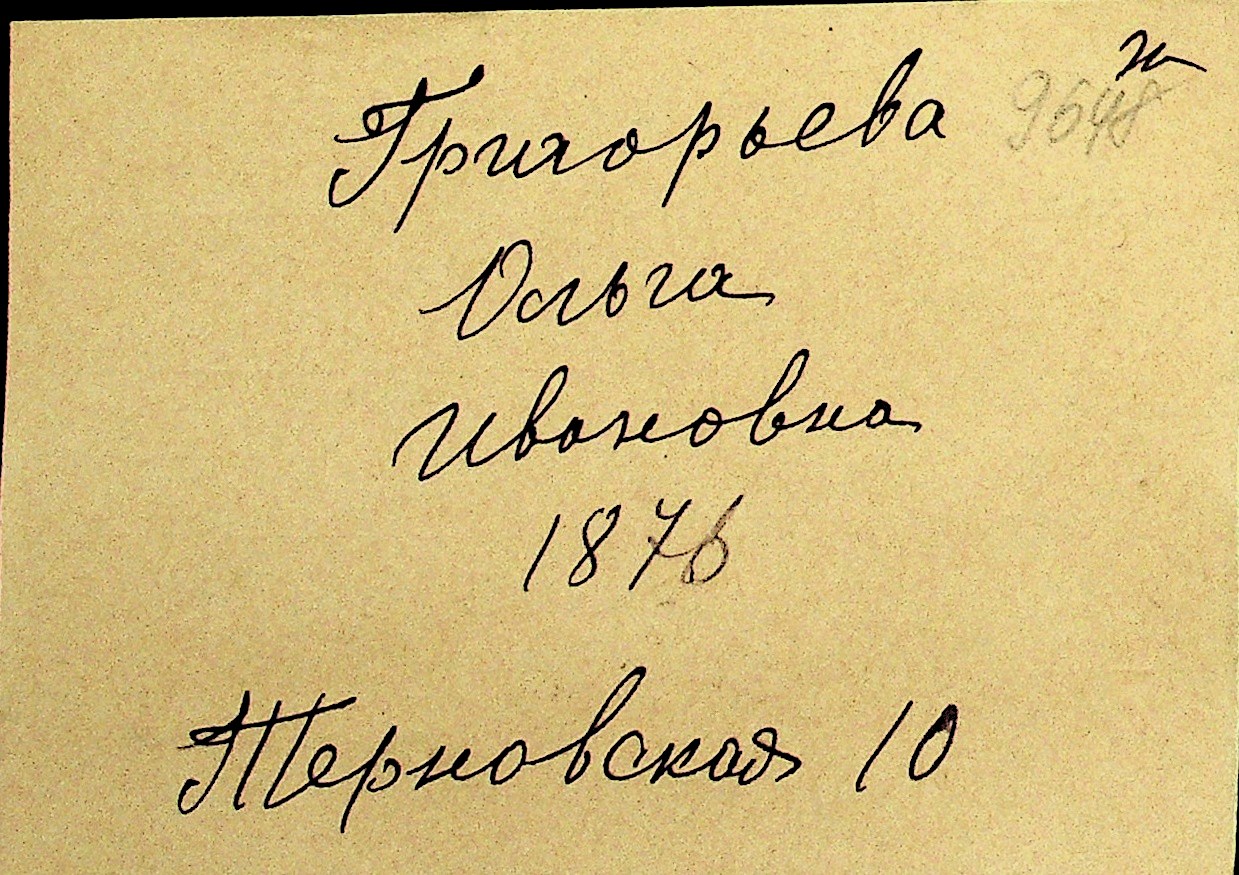 Григорьева
Ольга
Ивановна
1876
Терновская 10